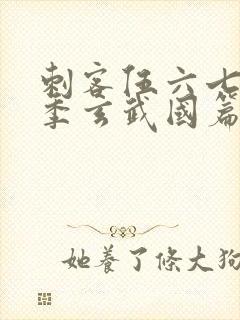 刺客伍六七
季玄武國篇
她養了條大狗